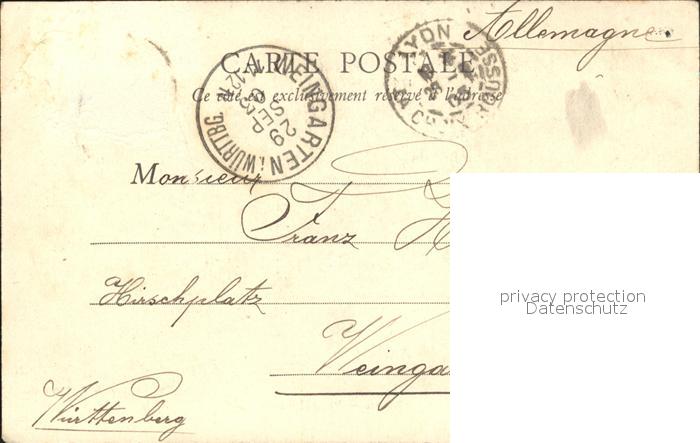 Allemagne.
CARTE POSTALE
Ce côté est exclusivement réservé à l'adresse
WEINGARTEN i. WÜRTTBG.
29
SEP
LYON
Monsieur
Franz H
Hirschplatz
Weinga
Württenberg
privacy protection
Datenschutz